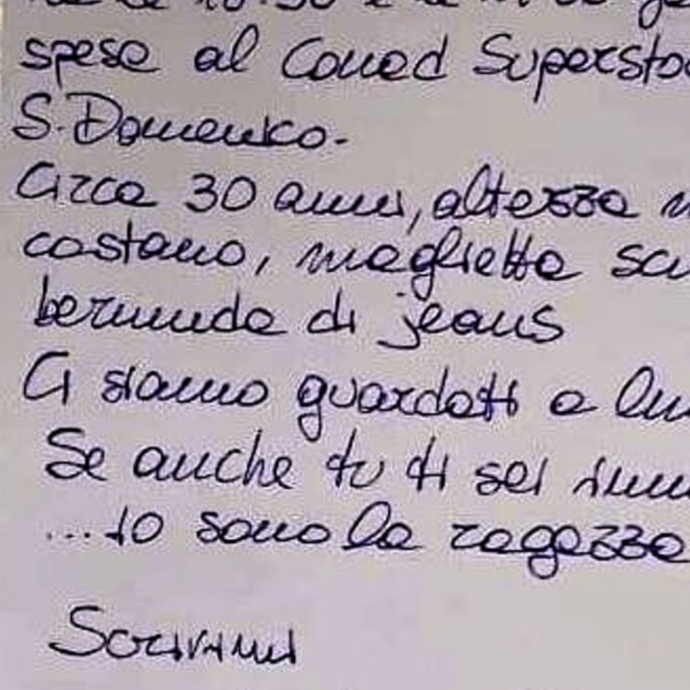 spesa al Conad Supersto
S. Domenico.
Circa 30 anni, altezza
castano, maglietta scu
bermuda di jeans
Ci siamo guardati a lun
Se anche tu ti sei
...io sono la ragazza
Scrivimi